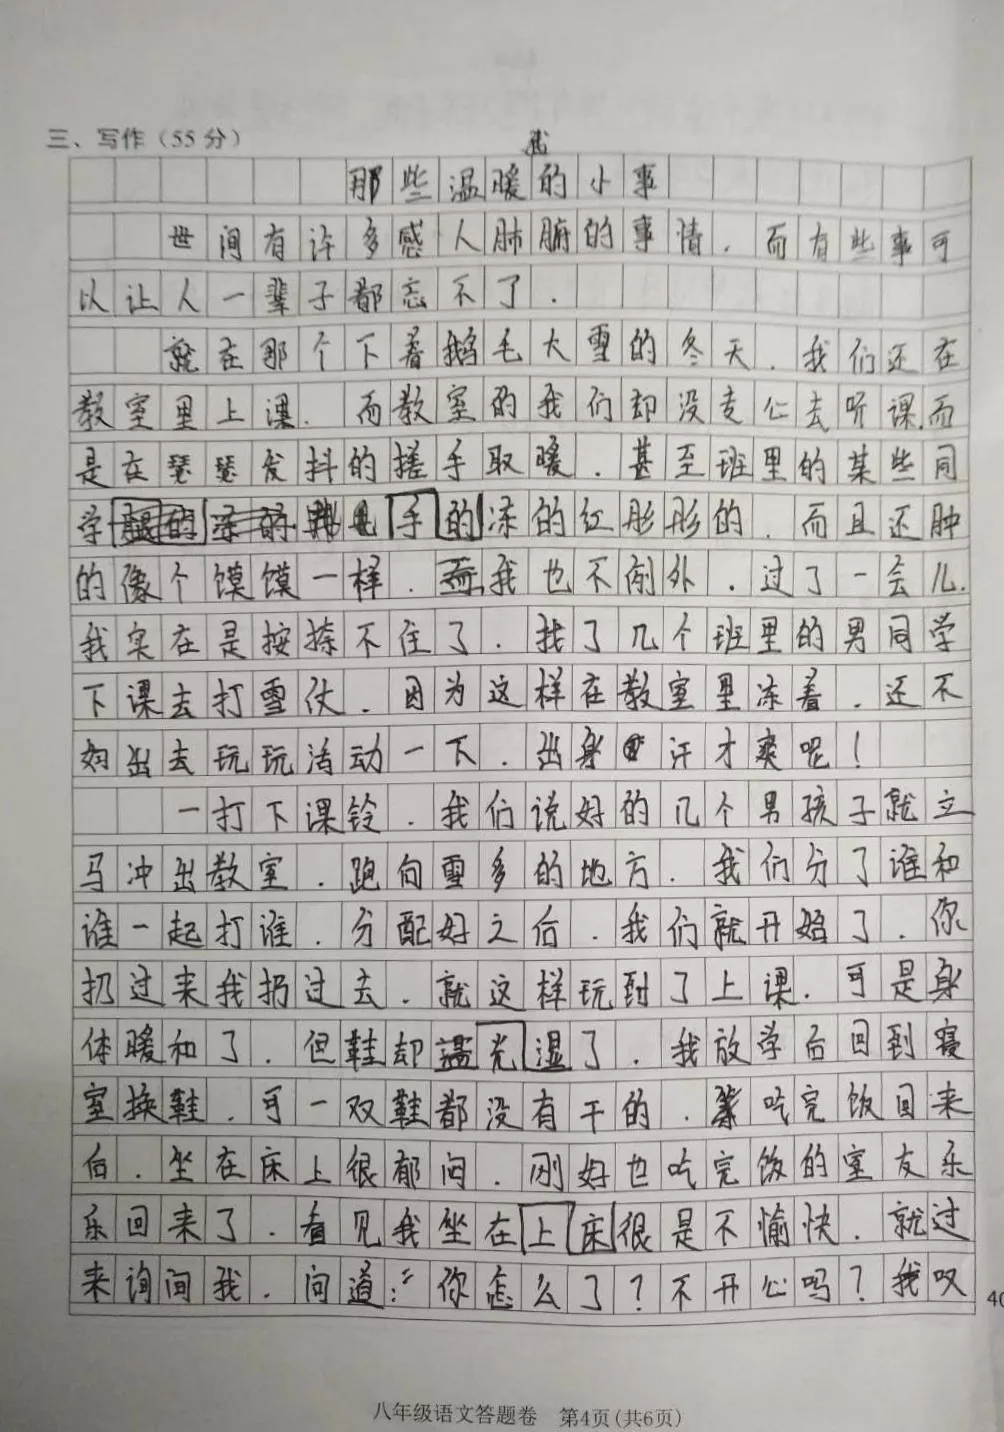 三、写作（55分）
我
那些温暖的小事
世间有许多感人肺腑的事情.而有些事可
以让人一辈子都忘不了.
就在那个下着鹅毛大雪的冬天.我们还在
教室里上课.而教室的我们却没专心去听课.而
是在瑟瑟发抖的搓手取暖.甚至班里的某些同
学手的冻的红彤彤的.而且还肿
的像个馍馍一样.我也不例外.过了一会儿.
我实在是按捺不住了.找了几个班里的男同学
下课去打雪仗.因为这样在教室里冻着.还不
如出去玩玩活动一下.出身汗才爽呢!
一打下课铃.我们说好的几个男孩子就立
马冲出教室.跑向雪多的地方.我们分了谁和
谁一起打谁.分配好之后.我们就开始了.你
扔过来我扔过去.就这样玩到了上课.可是身
体暖和了.但鞋却湿了.我放学后回到寝
室换鞋.可一双鞋都没有干的.吃完饭回来
后.坐在床上很郁闷.刚好也吃完饭的室友乐
乐回来了.看见我坐在上床很是不愉快.就过
来询问我.问道:“你怎么了?不开心吗?我叹
40
八年级语文答题卷 第4页(共6页)